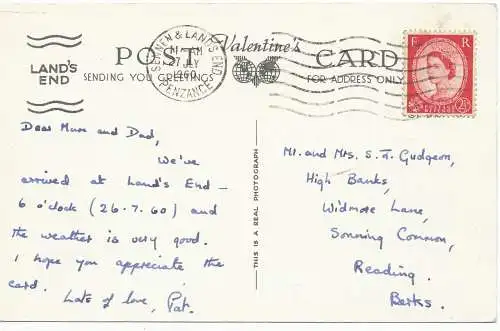 LAND'S
END
POST
SENDING YOU GREETINGS
SENNEN & LAND'S END
27 JLY
1960
PENZANCE
Valentine's
CARD
FOR ADDRESS ONLY
E R
Dear Mum and Dad,
We've
arrived at Land's End –
6 o'clock (26.7.60) and
the weather is very good.
I hope you appreciate the
card.
Lots of love, Pat.
THIS IS A REAL PHOTOGRAPH
Mr. and Mrs. S. T. Gudgeon,
High Banks,
Widmore Lane,
Sonning Common,
Reading.
Berks.